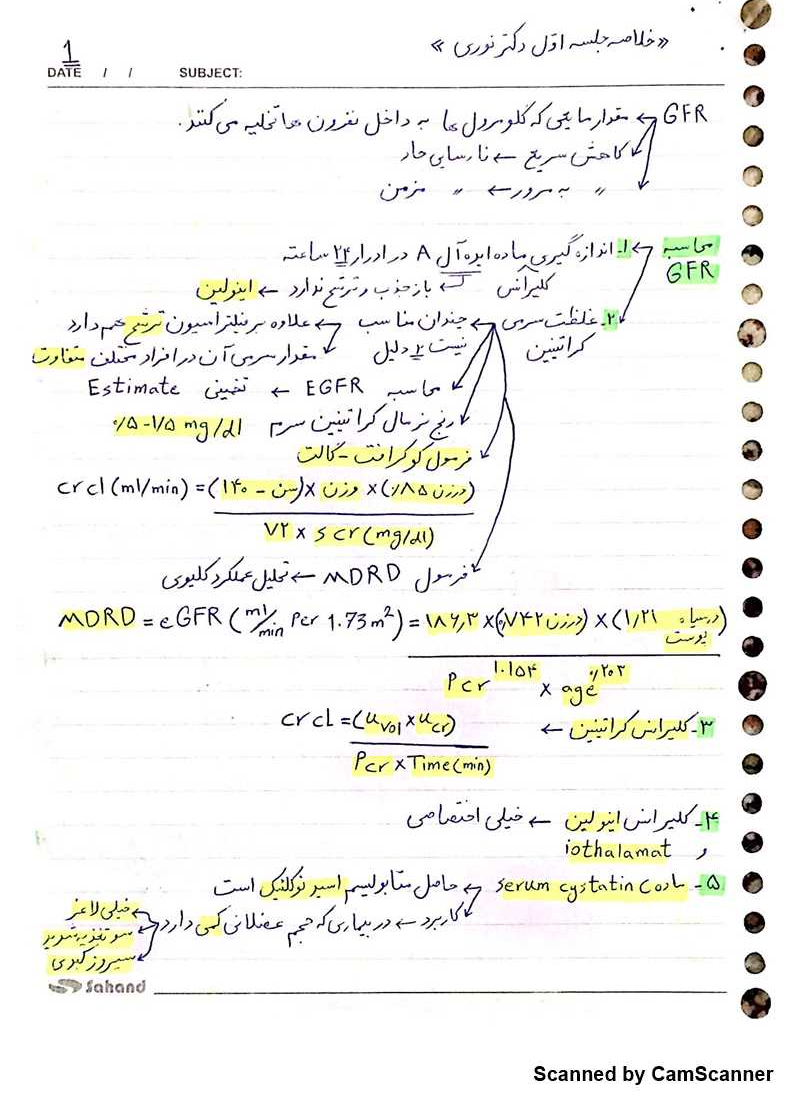 «خلاصه جلسه اول دکتر نوری»
1
DATE / / SUBJECT:
GFR ← مقدار مایعی که گلومرول ها به داخل نفرون ها تخلیه می کنند.
کاهش سریع ← نارسایی حاد
〃 به مرور ← 〃 مزمن
محاسبه GFR ← ۱. اندازه گیری ماده ایده آل A در ادرار ۲۴ ساعته
کلیرانس ← بازجذب و ترشح ندارد ← اینولین
۲. غلظت سرمی ← چندان مناسب ← علاوه بر فیلتراسیون ترشح هم دارد
کراتینین نیست ۲ دلیل ← مقدار سرمی آن در افراد مختلف متفاوت
محاسبه EGFR ← تخمینی Estimate
رنج نرمال کراتینین سرم ۰/۵-۱/۵ mg/dl
فرمول کوکرافت - گالت
crcl (ml/min) = (۱۴۰ - سن) × وزن × (درزن ۸۵٪)
۷۲ × scr (mg/dl)
فرمول MDRD ← تحلیل عملکرد کلیوی
MDRD = eGFR (ml/min Per 1.73 m²) = ۱۸۶٫۳ × (درزن ۰٫۷۴۲) × (۱٫۲۱ درسیاه پوست)
Pcr^۱.۱۵۴ × age^۰/۲۰۳
۳- کلیرانس کراتینین ← crcl = (uVol × ucr)
Pcr × Time (min)
۴- کلیرانس اینولین ← خیلی اختصاصی
و iothalamat
۵- serum cystatin ← حاصل متابولیسم اسید نوکلئیک است
کاربرد ← در بیماری که حجم عضلانی کمی دارد ← خیلی لاغر
سوتغذیه شدید
سیروز کبدی
Sahand
Scanned by CamScanner